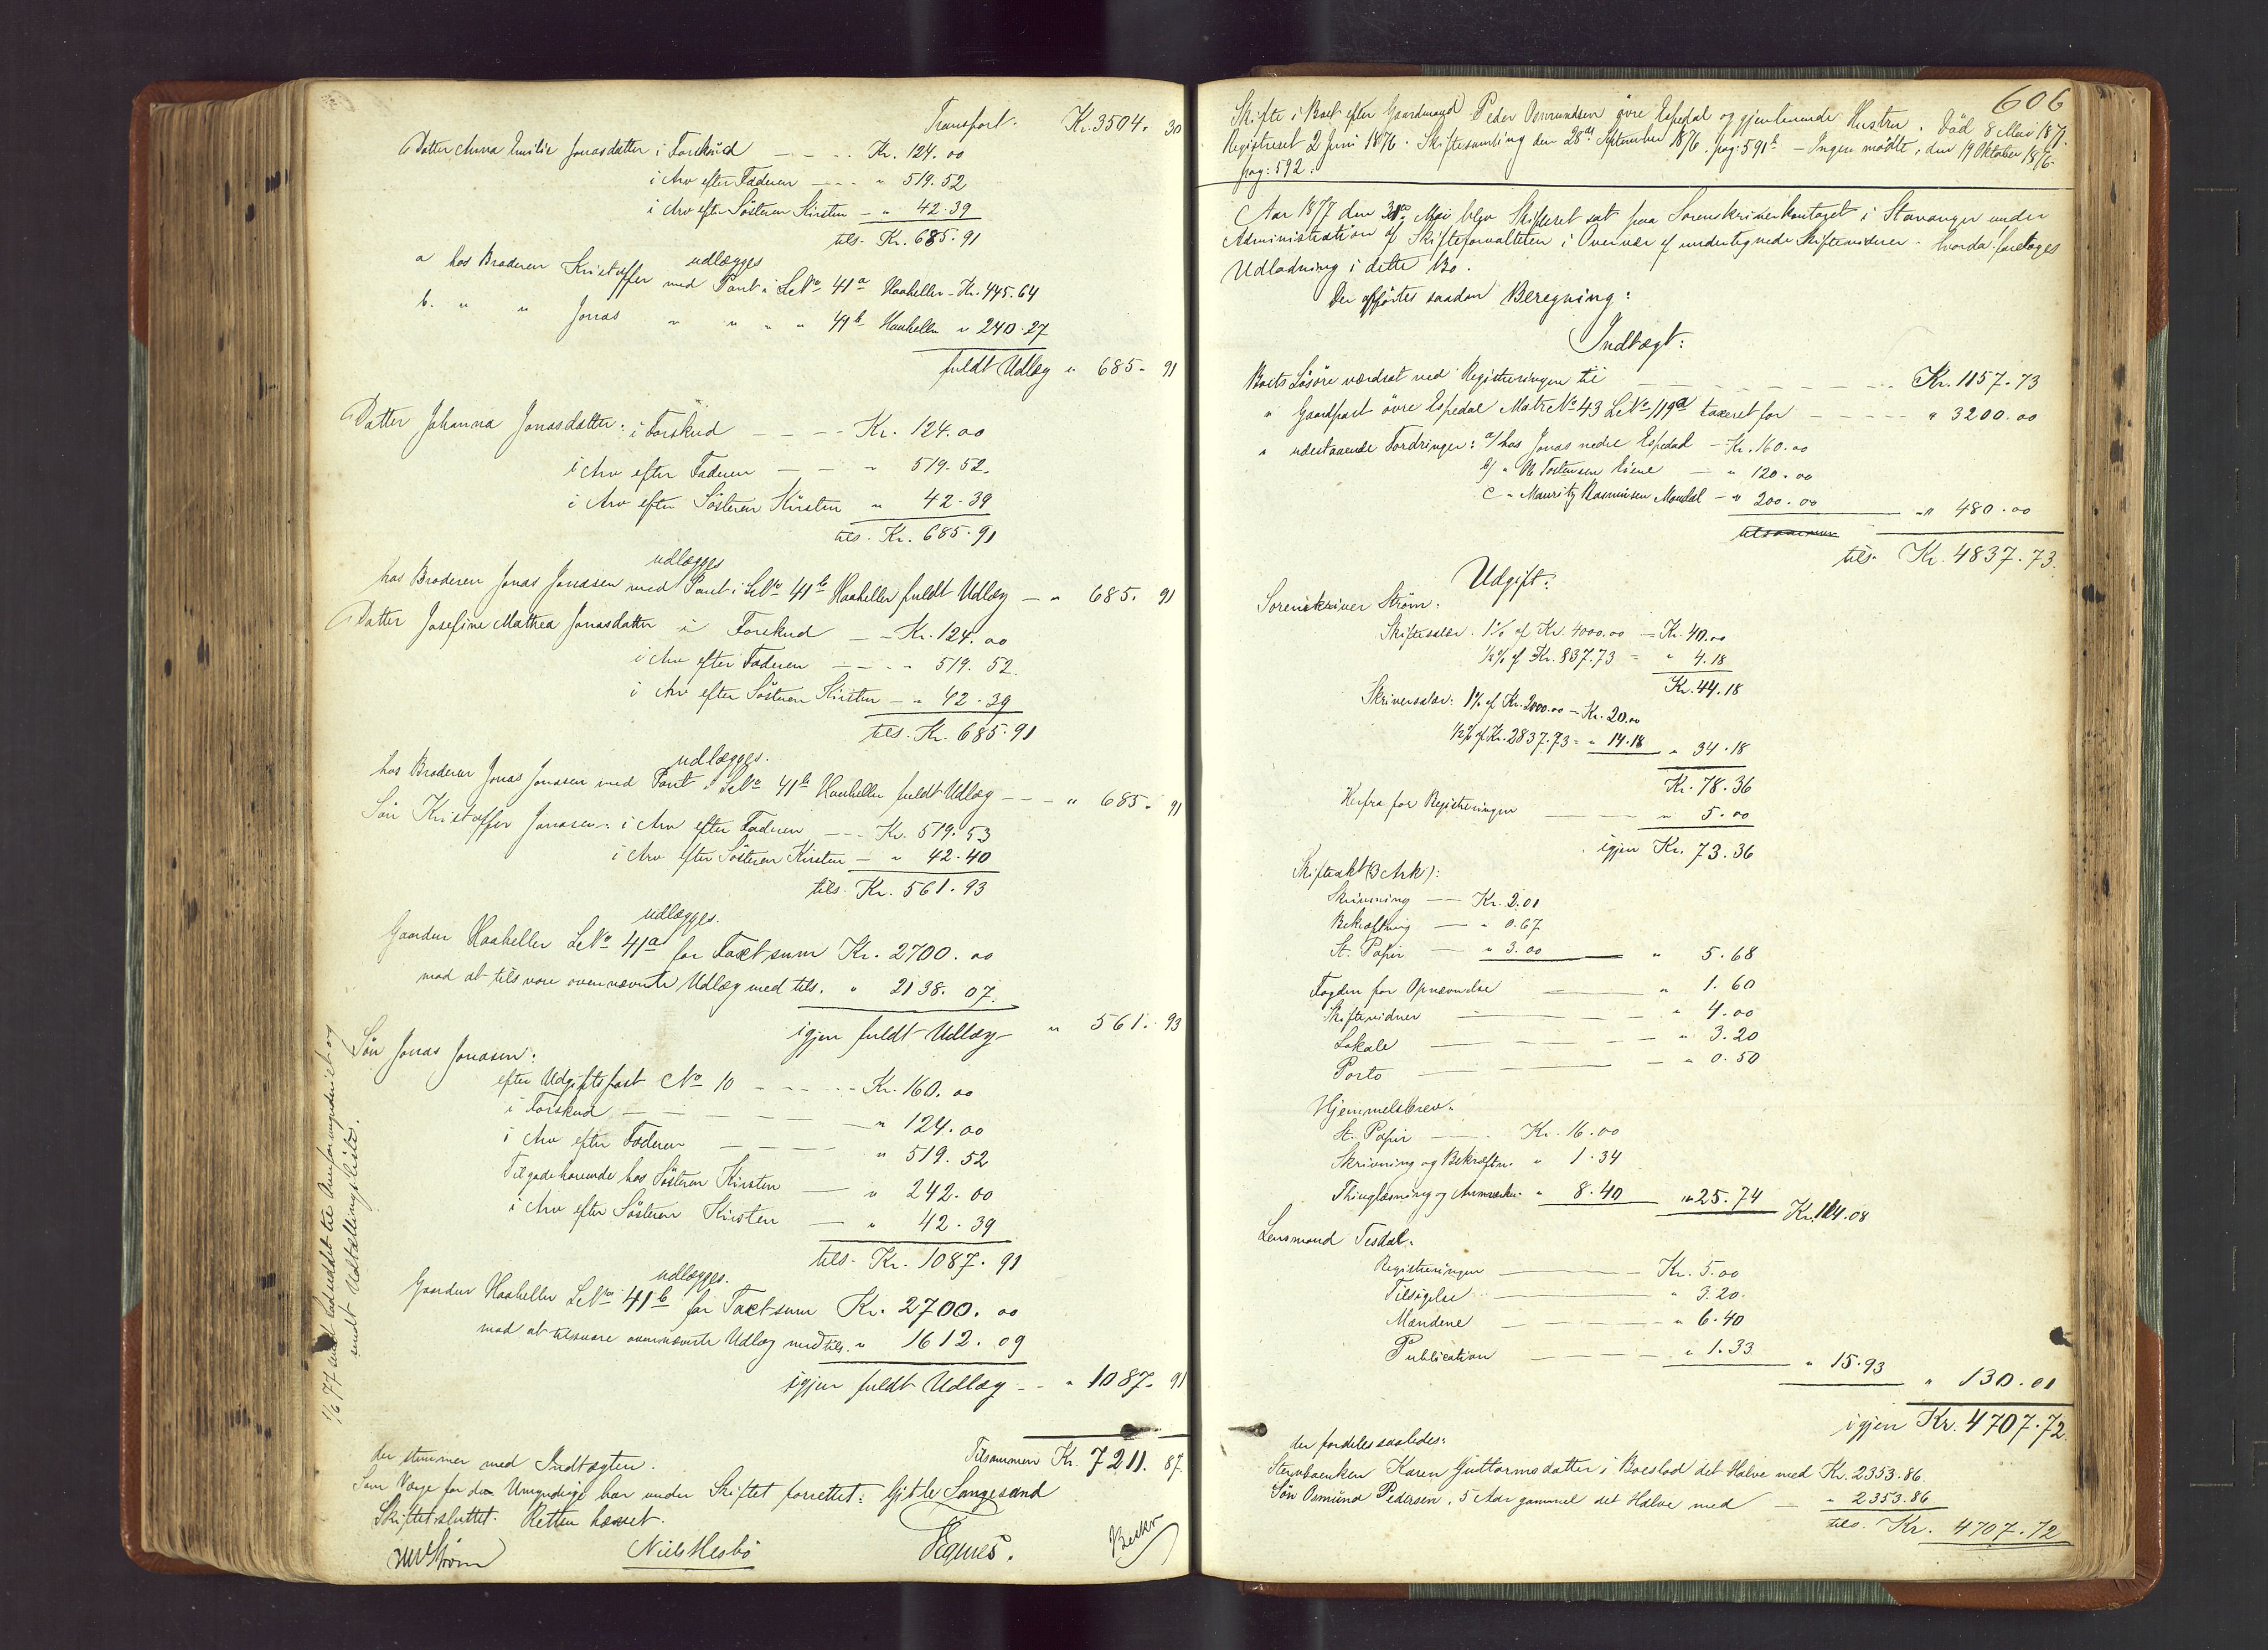 Transport. Kr. 3504. 30
Datter Anna Emilie Jonasdatter i Forskud — — Kr. 124.00
i Arv efter Faderen — — " 519.52
i Arv efter Søsteren Kirsten — " 42.39
tils. Kr. 685.91
udlægges
a hos Broderen Kristoffer med Pant i LNo 41a Haaheller — Kr. 445.64
b. " " Jonas " " " " 41b Haaheller " 240.27
fuldt Udlæg " 685. 91
Datter Johanna Jonasdatter: i Forskud — — Kr. 124.00
i Arv efter Faderen — — " 519.52.
i Arv efter Søsteren Kirsten " 42.39
tils. Kr. 685.91
udlægges
hos Broderen Jonas Jonasen med Pant i LNo 41b Haaheller fuldt Udlæg — " 685. 91
Datter Josefine Mathea Jonasdatter i Forskud — — Kr. 124.00
i Arv efter Faderen — — " 519.52.
i Arv efter Søsteren Kirsten — " 42.39
tils. Kr. 685.91
udlægges.
hos Broderen Jonas Jonasen med Pant i LNo 41b Haaheller fuldt Udlæg — — " 685. 91
Søn Kristoffer Jonasen: i Arv efter Faderen — — Kr. 519.53
i Arv efter Søsteren Kirsten — " 42.40
tils. Kr. 561.93
udlægges.
Gaarden Haaheller LNo 41a for Taxtsum Kr. 2700.00
mod at tilsvare ovennævnte Udlæg med tils. " 2138.07.
igjen fuldt Udlæg " 561. 93
Søn Jonas Jonasen:
efter Udgiftspost No 10 — — Kr. 160.00
i Forskud — — — " 124.00
i Arv efter Faderen — — — " 519.52
Tilgodehavende hos Søsteren Kirsten — " 242.00
i Arv efter Søsteren Kirsten — " 42.39
tils. Kr. 1087.91
udlægges.
Gaarden Haaheller LNo 41b for Taxtsum Kr. 2700.00
mod at tilsvare ovennævnte Udlæg med tils. " 1612.09
igjen fuldt Udlæg — — " 1087. 91
Tilsammen Kr. 7211. 87.
der stemmer med Indtægten.
Som Værge for de Umyndige har under Skiftet forrettet: Gitle Songesand
Skiftet sluttet. Retten hævet.
Strøm Niels Hesbø Tegnes.
1/6 77 sendt Udskift til Overformynderiet og
sendt Udstællingsliste.
606
Skifte i Boet efter Gaardmand Peder Osmundsen øvre Espedal og gjenlevende Hustru. Død 8 Mai 1871.
Registreret 2 Juni 1876. Skiftesamling den 28de September 1876 pag: 591b — Ingen mødte, den 19 Oktober 1876.
pag: 592.
Aar 1877 den 31te Mai blev Skifteret sat paa Sorenskriverkontoret i Stavanger under
Administration af Skifteforvalteren i Overvær af undertegnede Skiftevidner. Hvorda foretoges
Udlodning i dette Bo.
Der opførtes saadan Beregning:
Indtægt:
Boets Løsøre værdsat ved Registreringen til — — — Kr. 1157.73
" Gaardpart øvre Espedal MatrNo 43 LNo 119a taxeret for — — — " 3200.00
" udestaaende Fordringer: a/ hos Jonas nedre Espedal — Kr. 160.00
b/ " Ob. Tostensen Eiene — " 120.00
c " Mauritz Rasmusen Mondal — " 200.00 — " 480.00
tilsammen
tils. Kr. 4837.73.
Udgift:
Sorenskriver Strøm:
Skiftesalær. 1% af Kr. 4000.00 — Kr. 40.00
1/2% af Kr. 837.73 = " 4.18
Kr. 44.18
Skriversalær: 1% af Kr. 2000.00 — Kr. 20.00
1/2% af Kr. 2837.73 = " 14.18 " 34.18
Kr. 78.36
Herfra for Registreringen — — " 5.00
igjen Kr. 73.36
Skifteakt (3 Ark):
Skrivning — Kr. 2.01
Bekræftning — " 0.67
St. Papir — " 3.00 " 5.68
Fogden for Opnævnelse — " 1.60
Skiftevidner — — " 4.00
Lokale — — " 3.20
Porto — — " 0.50
Hjemmelsbrev.
St. Papir — Kr. 16.00
Skrivning og Bekræftn. " 1.34
Thinglæsning og Anmærkn. " 8.40 " 25.74 Kr. 114.08
Lensmand Tesdal.
Registreringen — Kr. 5.00
Tilsigelse — " 3.20.
Mændene — — " 6.40
Publication — — " 1.33 " 15.93 " 130.01
igjen Kr. 4707.72.
der fordeles saaledes:
Stervboenken Karen Guttormsdatter i Boeslod det Halve med Kr. 2353.86.
Søn Osmund Pedersen, 5 Aar gammel det Halve med — " 2353.86
tils. Kr. 4707.72